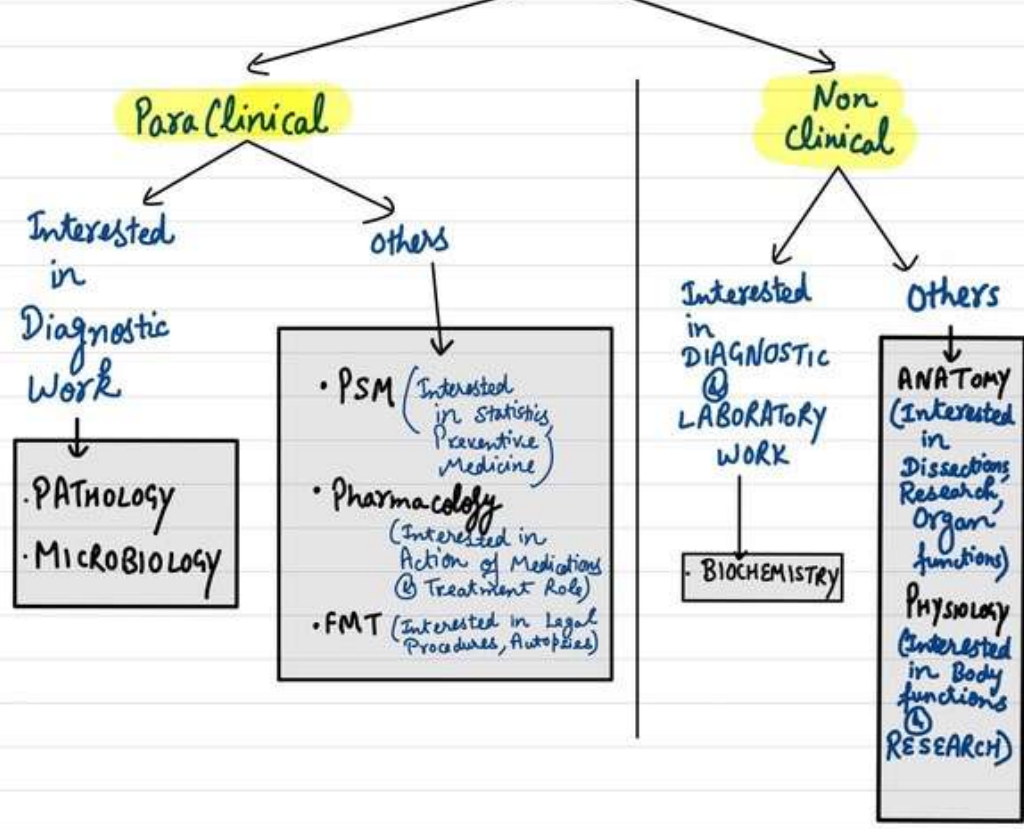 Para Clinical
Interested
in
Diagnostic
Work
• PATHOLOGY
• MICROBIOLOGY
Others
• PSM (Interested
in Statistics,
Preventive
Medicine)
• Pharmacology
(Interested in
Action of Medications
& Treatment Role)
• FMT (Interested in Legal
Procedures, Autopsies)
Non
Clinical
Interested
in
DIAGNOSTIC
&
LABORATORY
WORK
• BIOCHEMISTRY
Others
ANATOMY
(Interested
in
Dissections,
Research,
Organ
functions)
PHYSIOLOGY
(Interested
in Body
functions
&
RESEARCH)